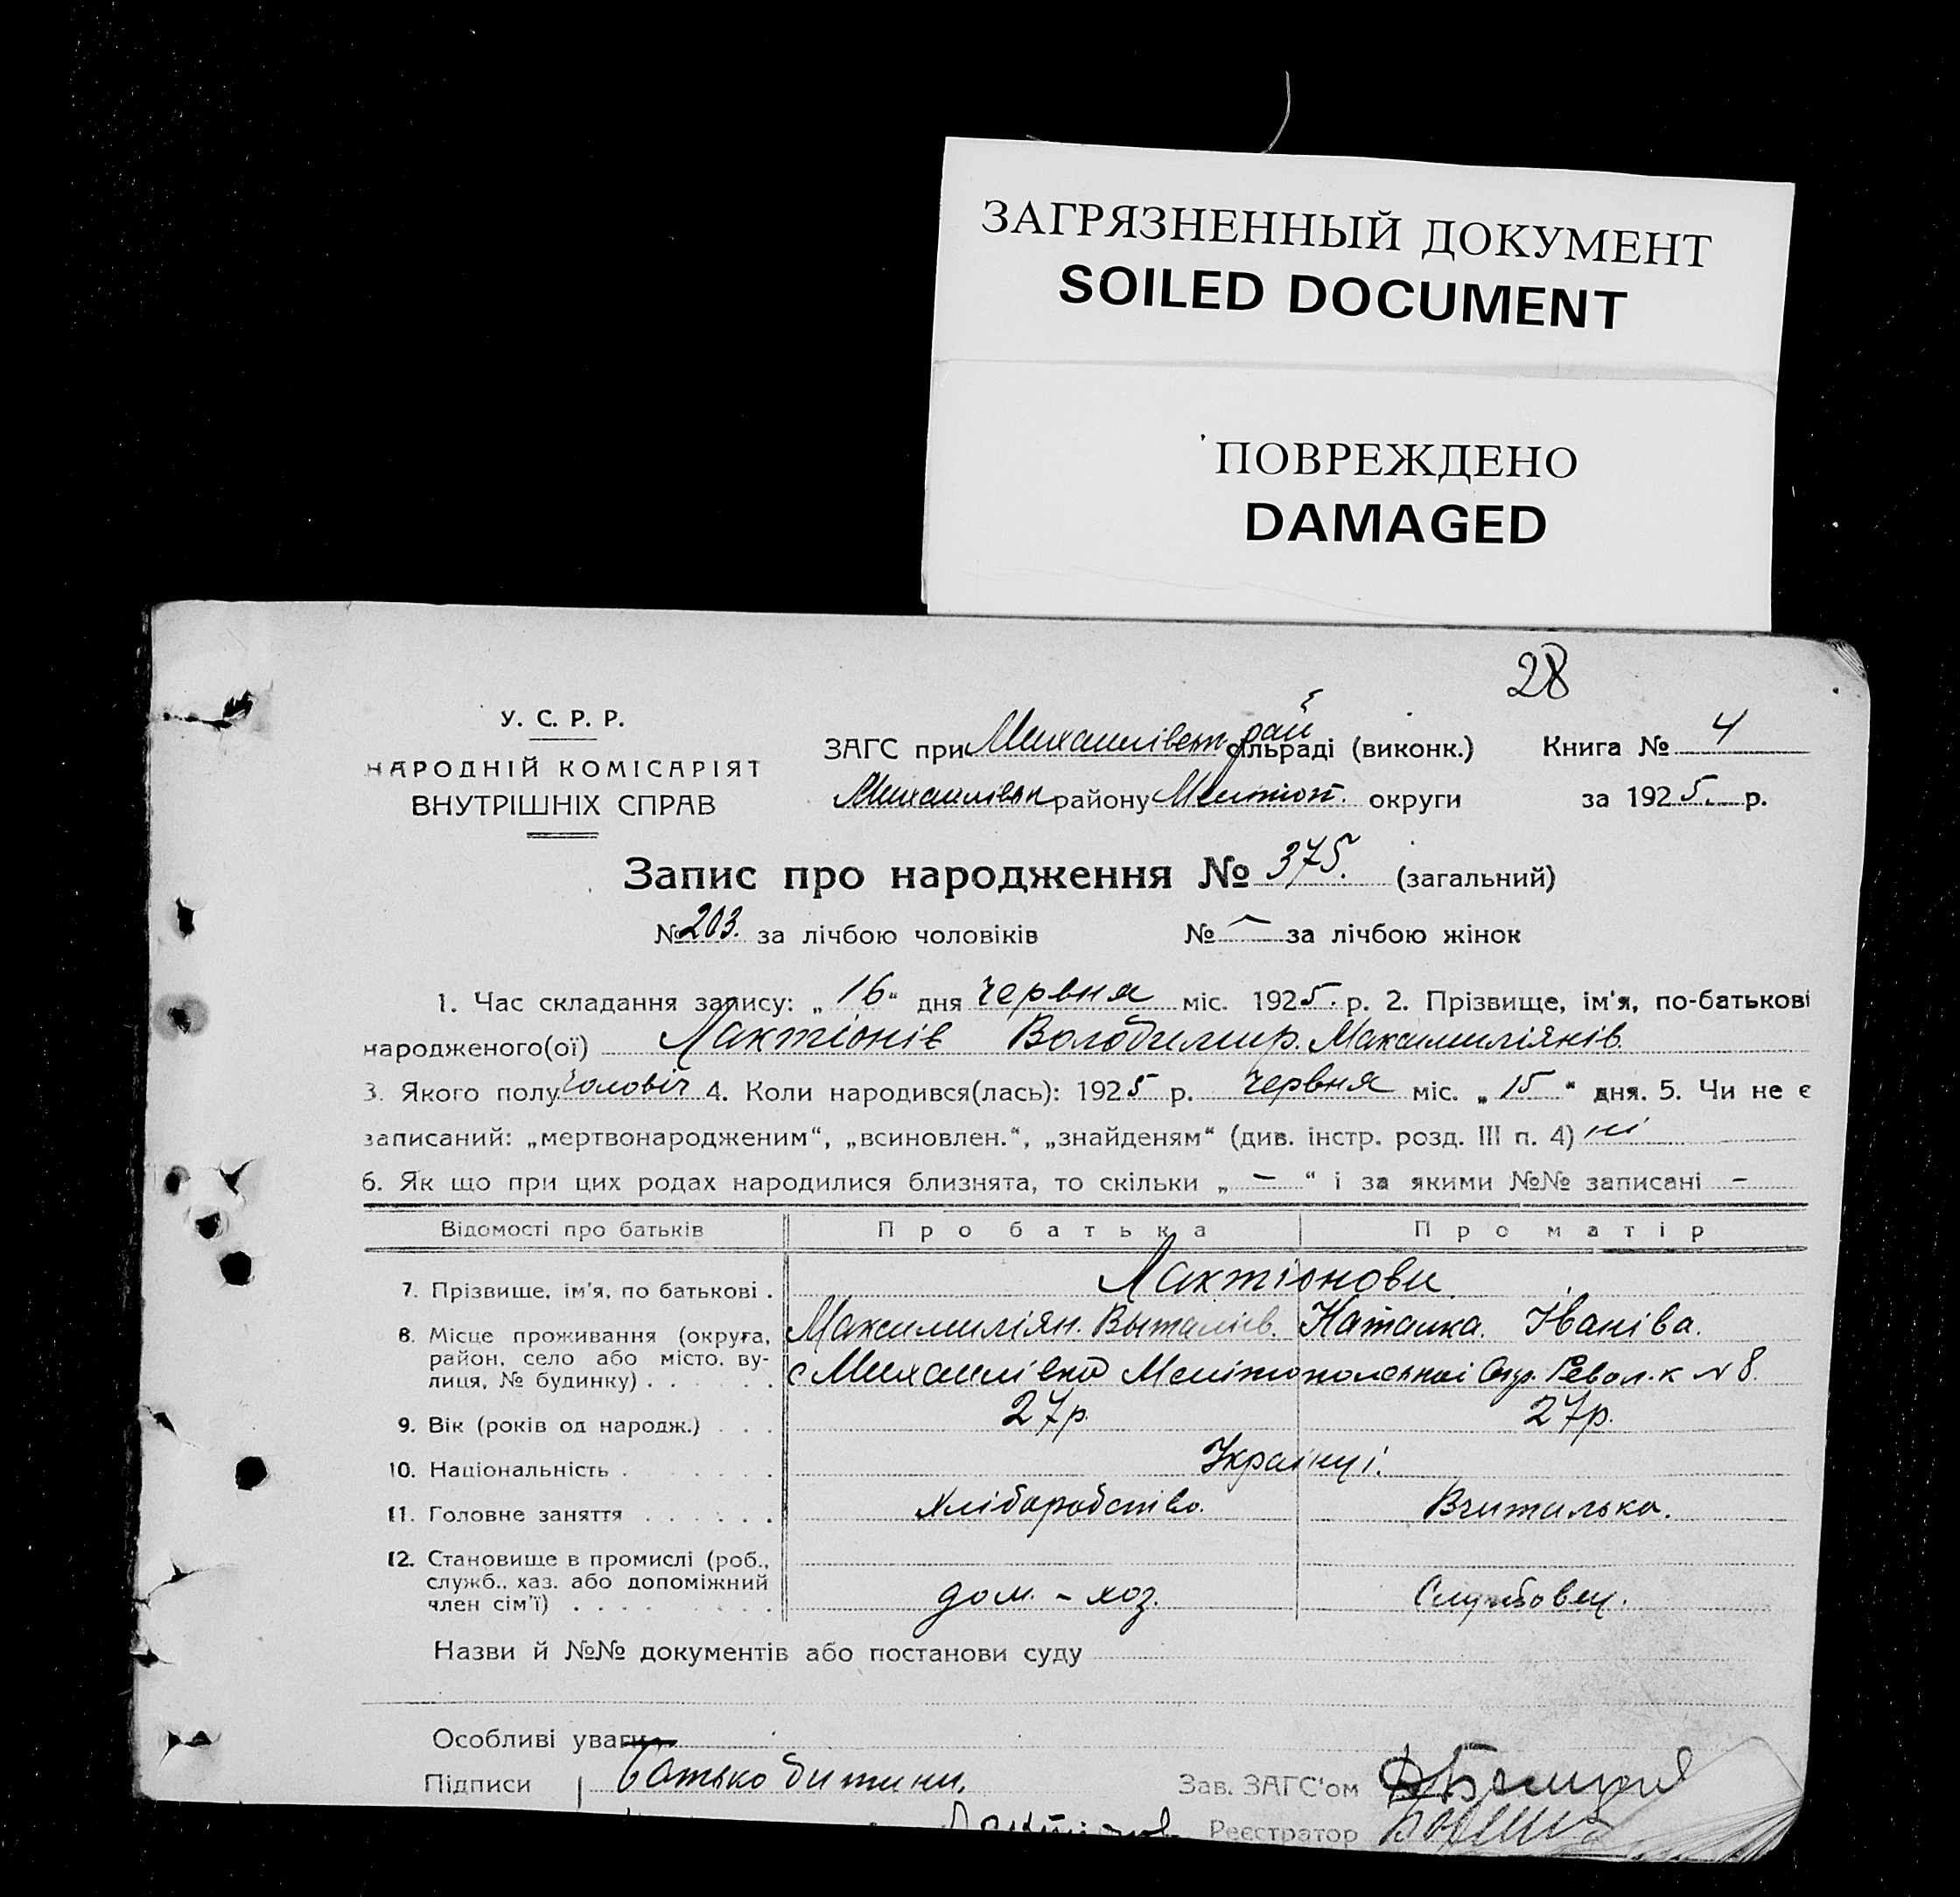 ЗАГРЯЗНЕННЫЙ ДОКУМЕНТ
SOILED DOCUMENT
ПОВРЕЖДЕНО
DAMAGED
28
У. С. Р. Р.
НАРОДНІЙ КОМІСАРІЯТ
ВНУТРІШНІХ СПРАВ
ЗАГС при Михайлівськ рай сільраді (виконк.) Книга № 4
Михайлівськ району Мелітоп. округи за 1925. р.
Запис про народження № 375. (загальний)
№ 203. за лічбою чоловіків № — за лічбою жінок
1. Час складання запису: „ 16 “ дня червня міс. 1925. р. 2. Прізвище, ім'я, по-батькові
народженого(ої) Лактіонів Володимир. Максимиліянів.
3. Якого полу чоловіч 4. Коли народився(лась): 1925 р. червня міс. „ 15 “ дня. 5. Чи не є
записаний: „мертвонародженим“, „всиновлен.“, „знайденям“ (див. інстр. розд. III п. 4) ні
6. Як що при цих родах народилися близнята, то скільки „ — “ і за якими №№ записані —
Відомості про батьків Про батька Про матір
7. Прізвище, ім'я, по батькові . Лактіонови
Максимиліян. Наталка. Іванівa.
8. Місце проживання (округа,
район, село або місто, ву-
лиця, № будинку) . . . . . . с Михайлівка Меліто польської Окр.Револ. к № 8.
9. Вік (років од народж.) . . . 27р. 27р.
10. Національність . . . . . . Українці.
11. Головне заняття . . . . . . Хліборобство. Вчителька.
12. Становище в промислі (роб.,
служб., хаз. або допоміжний
член сім'ї) . . . . . . дом. - хоз. Службовец.
Назви й №№ документів або постанови суду
Особливі уваги
Підписи батько дитини. Зав. ЗАГС'ом
Лактіонов Реєстратор